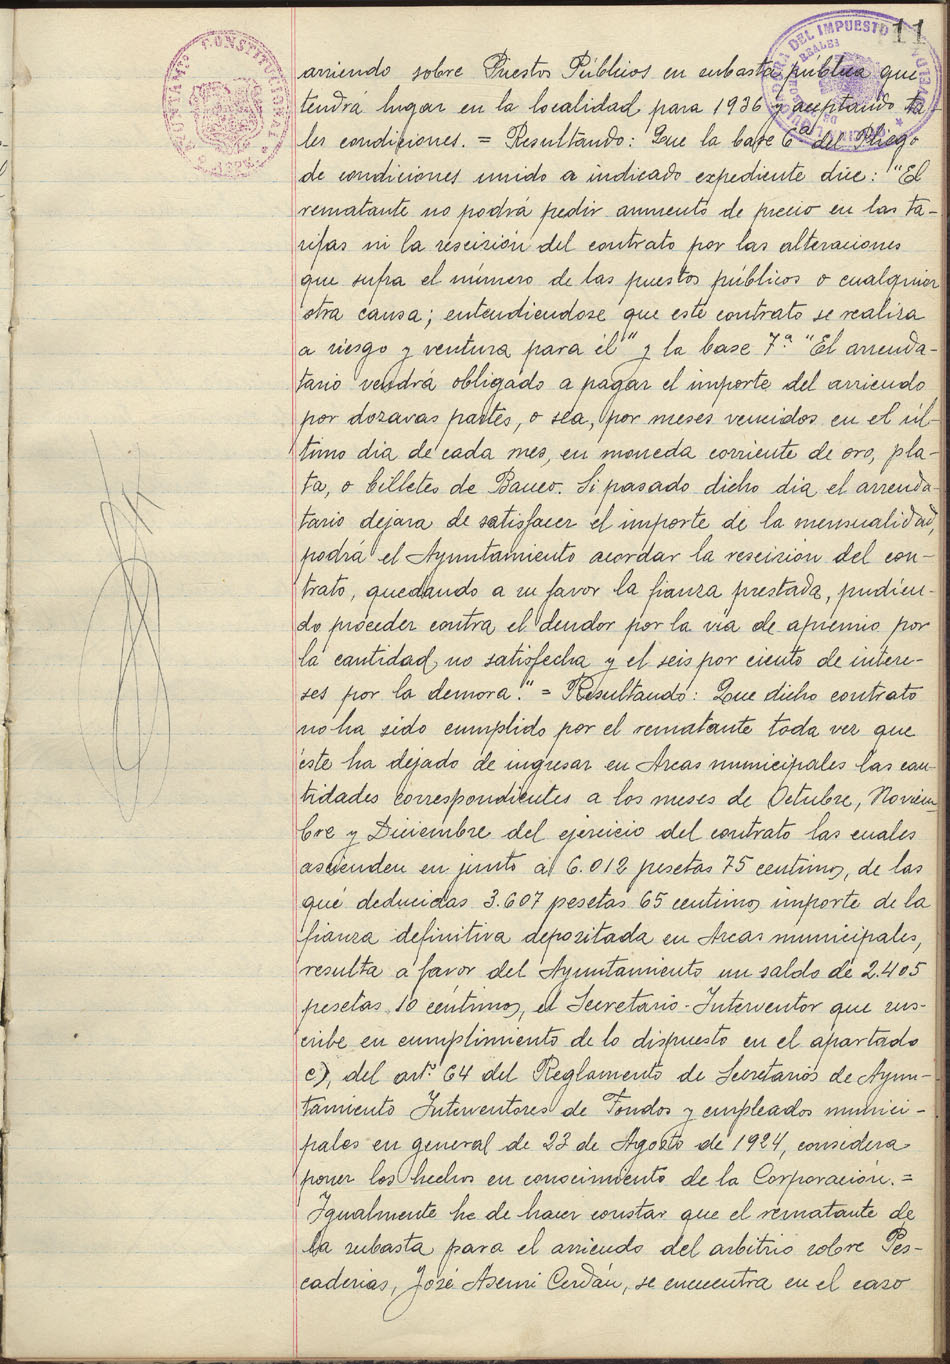 11
AYUNTAMTO CONSTITUCIONAL
arriendo sobre Puestos Públicos en subasta pública que
tendrá lugar en la localidad para 1936 y aceptando ta-
les condiciones. = Resultando: Que la base 6ª del Pliego
de condiciones unido a indicado expediente dice: "El
rematante no podrá pedir aumento de precio en las ta-
rifas ni la rescisión del contrato por las alteraciones
que sufra el número de las puestos públicos o cualquier
otra causa; entendiendose que este contrato se realiza
a riesgo y ventura para él" y la base 7ª "El arrenda-
tario vendrá obligado a pagar el importe del arriendo
por dozavas partes, o sea, por meses vencidos en el úl-
timo dia de cada mes, en moneda corriente de oro, pla-
ta, o billetes de Banco. Si pasado dicho dia el arrenda-
tario dejara de satisfacer el importe de la mensualidad,
podrá el Ayuntamiento acordar la rescisión del con-
trato, quedando a su favor la fianza prestada, pudien-
do proceder contra el deudor por la via de apremio por
la cantidad no satisfecha y el seis por ciento de intere-
ses por la demora." = Resultando: Que dicho contrato
no ha sido cumplido por el rematante toda vez que
éste ha dejado de ingresar en Arcas municipales las can-
tidades correspondientes a los meses de Octubre, Noviem-
bre y Diciembre del ejercicio del contrato las cuales
ascienden en junto a 6.012 pesetas 75 centimos, de las
que deducidas 3.607 pesetas 65 centimos importe de la
fianza definitiva depositada en Arcas municipales,
resulta a favor del Ayuntamiento un saldo de 2.405
pesetas 10 céntimos, el Secretario-Interventor que sus-
cribe en cumplimiento de lo dispuesto en el apartado
c), del artº 64 del Reglamento de Secretarios de Ayun-
tamiento Interventores de Fondos y empleados munici-
pales en general de 23 de Agosto de 1924, considera
poner los hechos en conocimiento de la Corporación. =
Igualmente he de hacer constar que el rematante de
la subasta para el arriendo del arbitrio sobre Pes-
caderias, José Asensi Cerdán, se encuentra en el caso